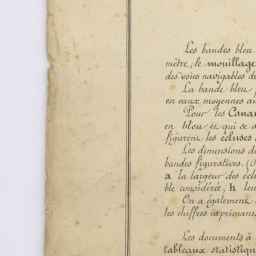 Les bandes bleu
mètre, le mouillage
des voies navigables de
La bande bleu
en eaux moyennes au
Pour les Cana
en bleu et qui se d
figurent les écluses
Les dimensions de
bandes figuratives. (
a la largeur des écl
ble considérée, h leu
On a également
les chiffres exprimant
Les documents à
tableaux statistiq